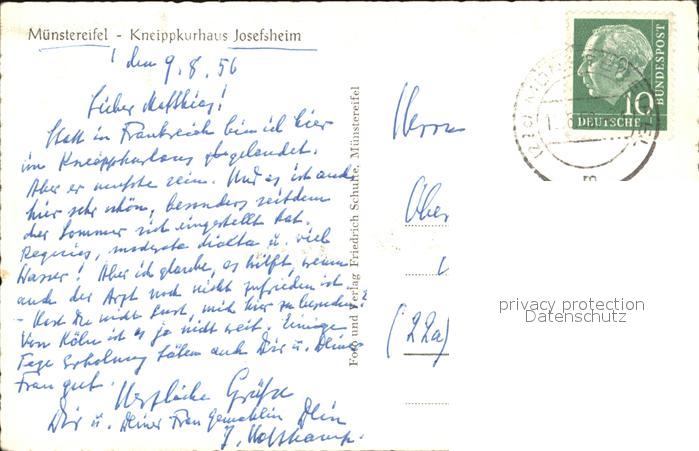 Münstereifel - Kneippkurhaus Josefsheim
den 9.8.56
Lieber Matthias!
Statt in Frankreich bin ich hier
im Kneippkurhaus gelandet.
Aber es mußte sein. Und es ist auch
hier sehr schön, besonders seitdem
der Sommer sich eingestellt hat.
moderata diaeta u. viel
Wasser! Aber ich glaube, es hilft, wenn
auch der Arzt noch nicht zufrieden ist.
- Hast Du nicht Lust, mich hier zu besuchen?
Von Köln ist es ja nicht weit. Einige
Tage Erholung täten auch Dir u. Deiner
Frau gut.
Herzliche Grüße
Dir u. Deiner Frau Gemahlin Dein
J.
Foto und Verlag Friedrich Schulte, Münstereifel
Herrn
Ober
(22a)
10
DEUTSCHE
BUNDESPOST
privacy protection
Datenschutz